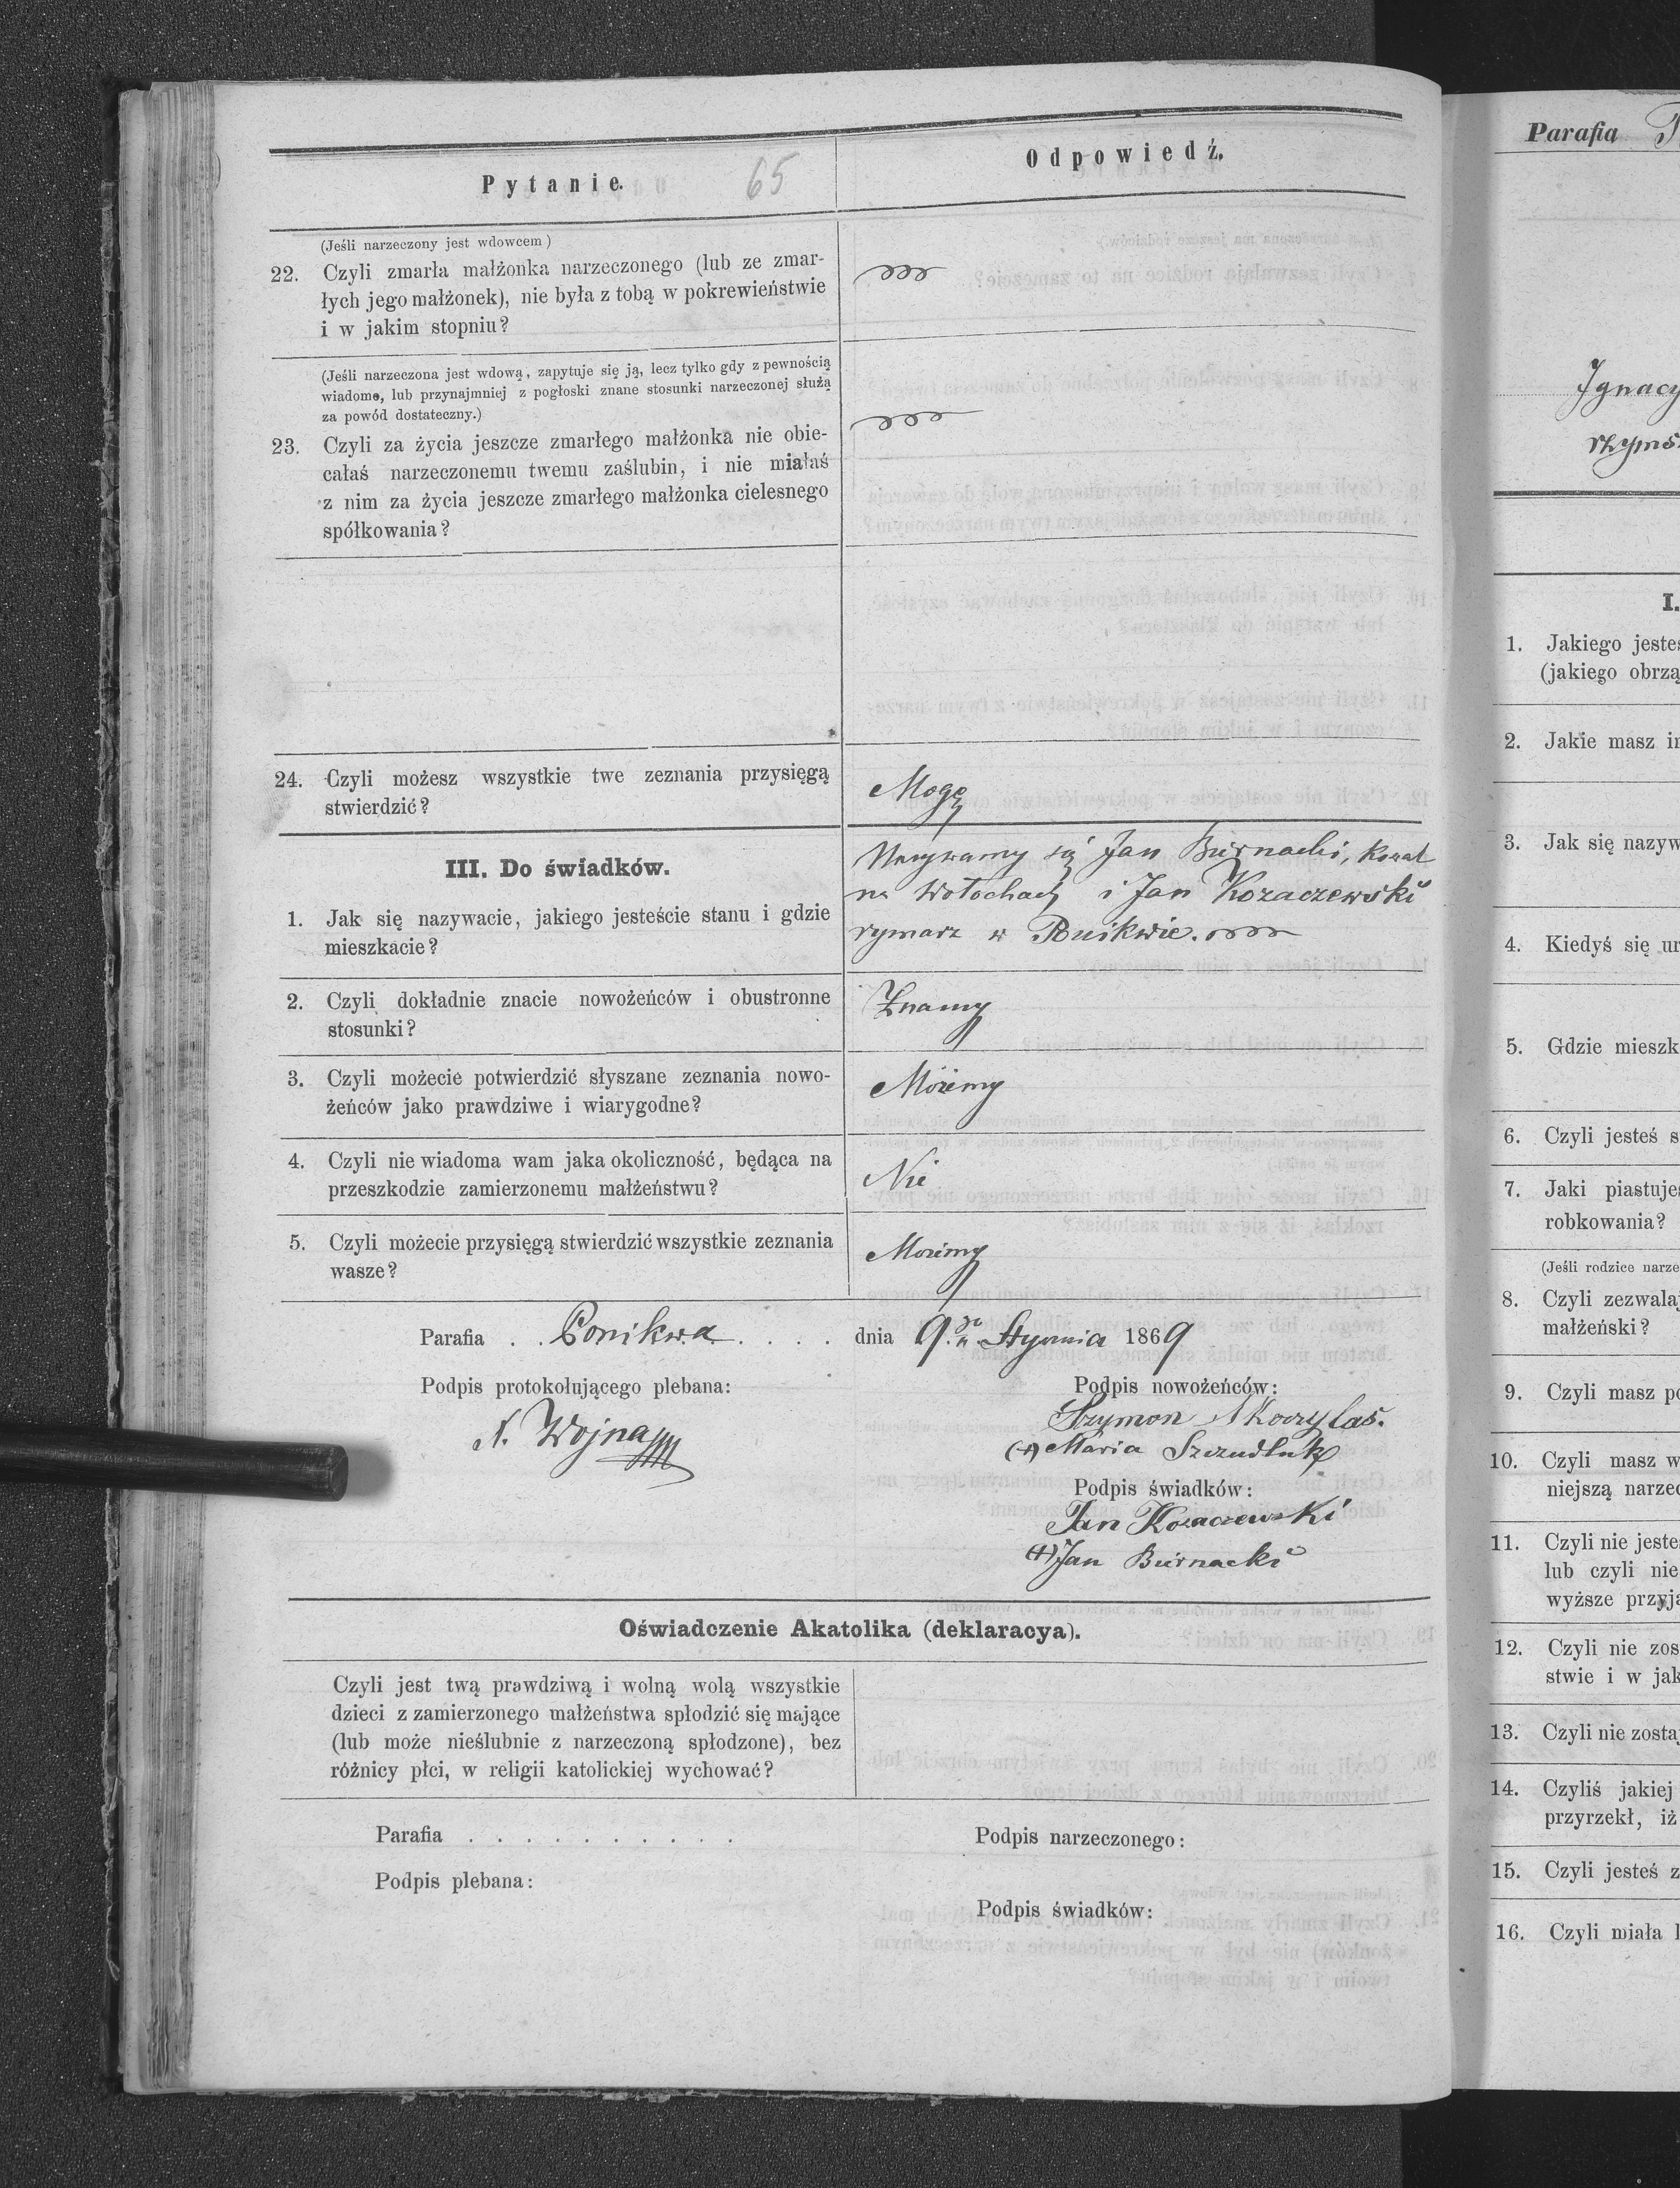 Pytanie. 65
Odpowiedź.
(Jeśli narzeczony jest wdowcem)
22. Czyli zmarła małżonka narzeczonego (lub ze zmar-
łych jego małżonek), nie była z tobą w pokrewieństwie
i w jakim stopniu?
(Jeśli narzeczona jest wdową, zapytuje się ją, lecz tylko gdy z pewnością
wiadome, lub przynajmniej z pogłoski znane stosunki narzeczonej służą
za powód dostateczny.)
23. Czyli za życia jeszcze zmarłego małżonka nie obie-
całaś narzeczonemu twemu zaślubin, i nie miałaś
z nim za życia jeszcze zmarłego małżonka cielesnego
spółkowania?
24. Czyli możesz wszystkie twe zeznania przysięgą
stwierdzić?
Mogę
III. Do świadków.
1. Jak się nazywacie, jakiego jesteście stanu i gdzie
mieszkacie?
Nazywamy się Jan Biernacki, Kowal
na Wołochach i Jan Kozaczewski
rymarz w Ponikwie.
2. Czyli dokładnie znacie nowożeńców i obustronne
stosunki?
Znamy
3. Czyli możecie potwierdzić słyszane zeznania nowo-
żeńców jako prawdziwe i wiarygodne?
Możemy
4. Czyli nie wiadoma wam jaka okoliczność, będąca na
przeszkodzie zamierzonemu małżeństwu?
Nie
5. Czyli możecie przysięgą stwierdzić wszystkie zeznania
wasze?
Możemy
Parafia . . Ponikwa . . . . dnia 9. Stycznia 1869
Podpis protokołującego plebana:
Podpis nowożeńców:
Wojna
Szymon Skoczylas.
(+) Maria Szczudluk
Podpis świadków:
Jan Kozaczewski
(+) Jan Biernacki
Oświadczenie Akatolika (deklaracya).
Czyli jest twą prawdziwą i wolną wolą wszystkie
dzieci z zamierzonego małżeństwa spłodzić się mające
(lub może nieślubnie z narzeczoną spłodzone), bez
różnicy płci, w religii katolickiej wychować?
Parafia . . . . . . . . . . .
Podpis narzeczonego:
Podpis plebana:
Podpis świadków:
Parafia
Ignacy
I.
1. Jakiego jesteś
(jakiego obrzą
2. Jakie masz im
3. Jak się nazyw
4. Kiedyś się ur
5. Gdzie mieszk
6. Czyli jesteś s
7. Jaki piastujes
robkowania?
(Jeśli rodzice narze
8. Czyli zezwalaj
małżeński?
9. Czyli masz po
10. Czyli masz w
niejszą narzec
11. Czyli nie jeste
lub czyli nie
wyższe przyją
12. Czyli nie zos
stwie i w jak
13. Czyli nie zosta
14. Czyliś jakiej
przyrzekł, iż
15. Czyli jesteś z
16. Czyli miała